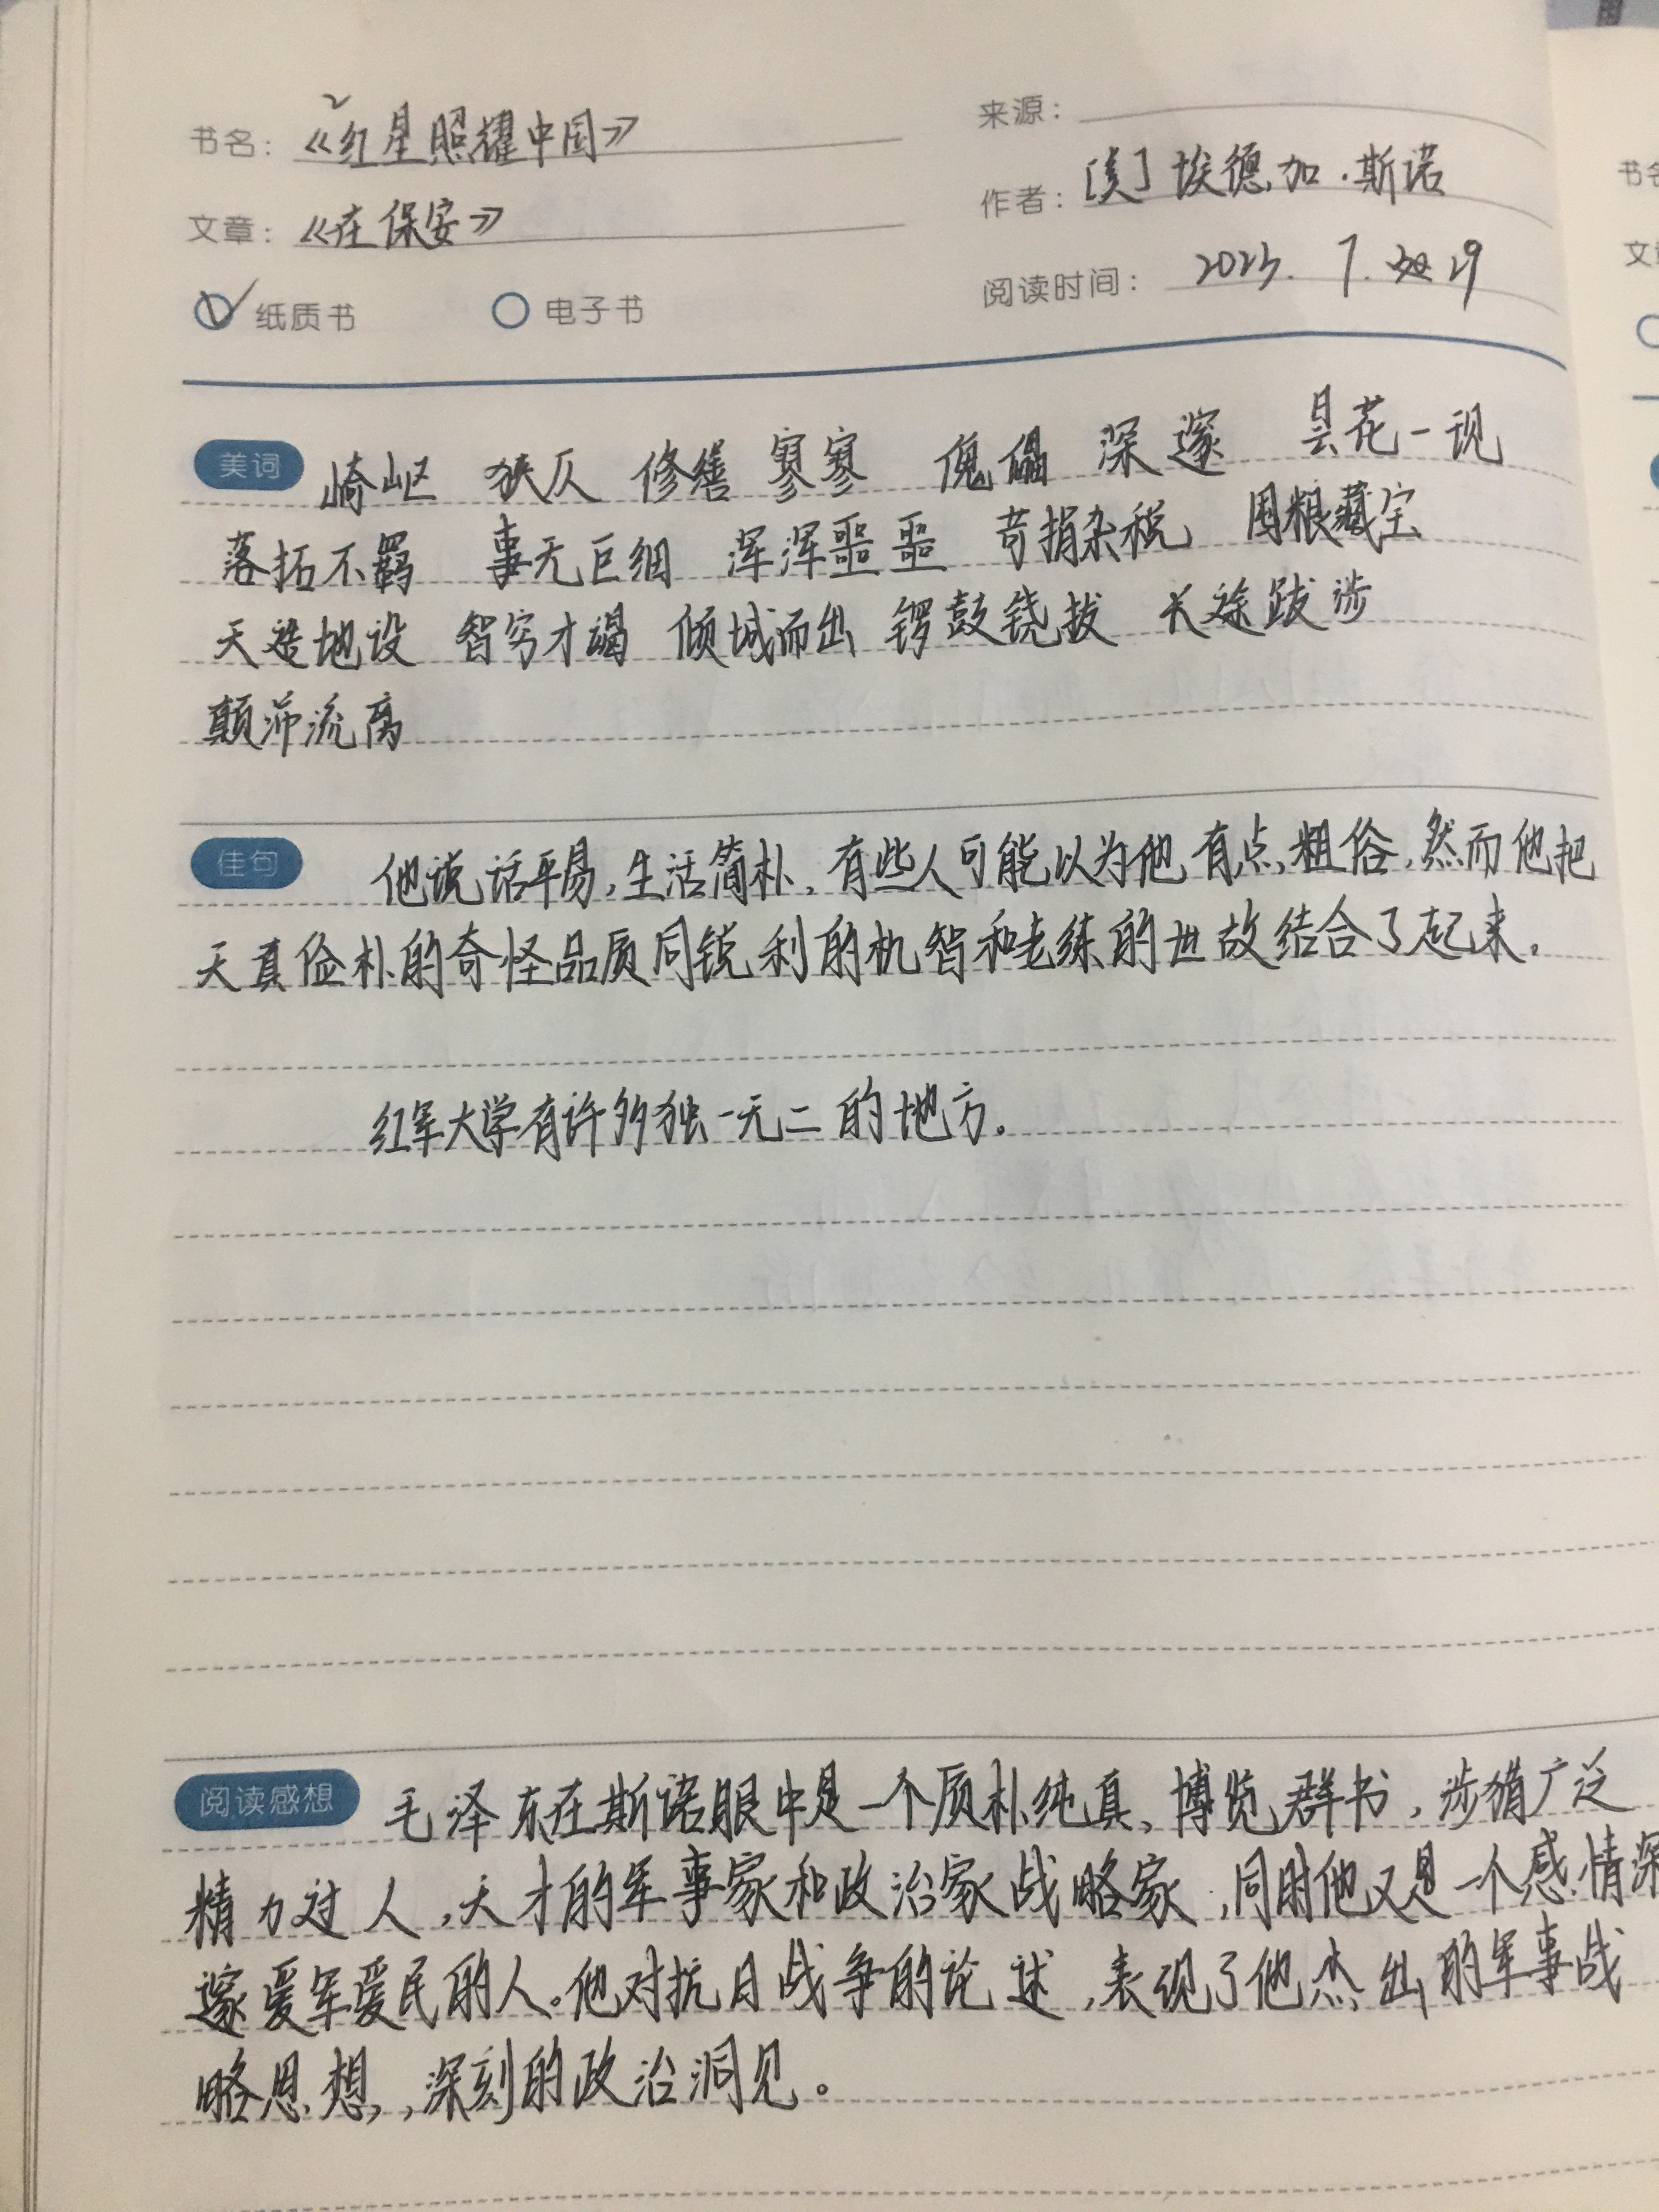 书名：《红星照耀中国》
来源：
作者：[美]埃德加·斯诺
文章：《在保安》
阅读时间：2023. 7. 29
纸质书 电子书
美词 崎岖 狭仄 修缮 寥寥 傀儡 深邃 昙花一现
落拓不羁 事无巨细 浑浑噩噩 苛捐杂税 囤粮藏宝
天造地设 智穷才竭 倾城而出 锣鼓铙拔 长途跋涉
颠沛流离
佳句 他说话平易，生活简朴，有些人可能以为他有点粗俗，然而他把
天真俭朴的奇怪品质同锐利的机智和老练的世故结合了起来。
红军大学有许多独一无二的地方。
阅读感想 毛泽东在斯诺眼中是一个质朴纯真、博览群书，涉猎广泛
精力过人，天才的军事家和政治家战略家，同时他又是一个感情深
邃爱军爱民的人。他对抗日战争的论述，表现了他杰出的军事战
略思想，，深刻的政治洞见。
书名
文